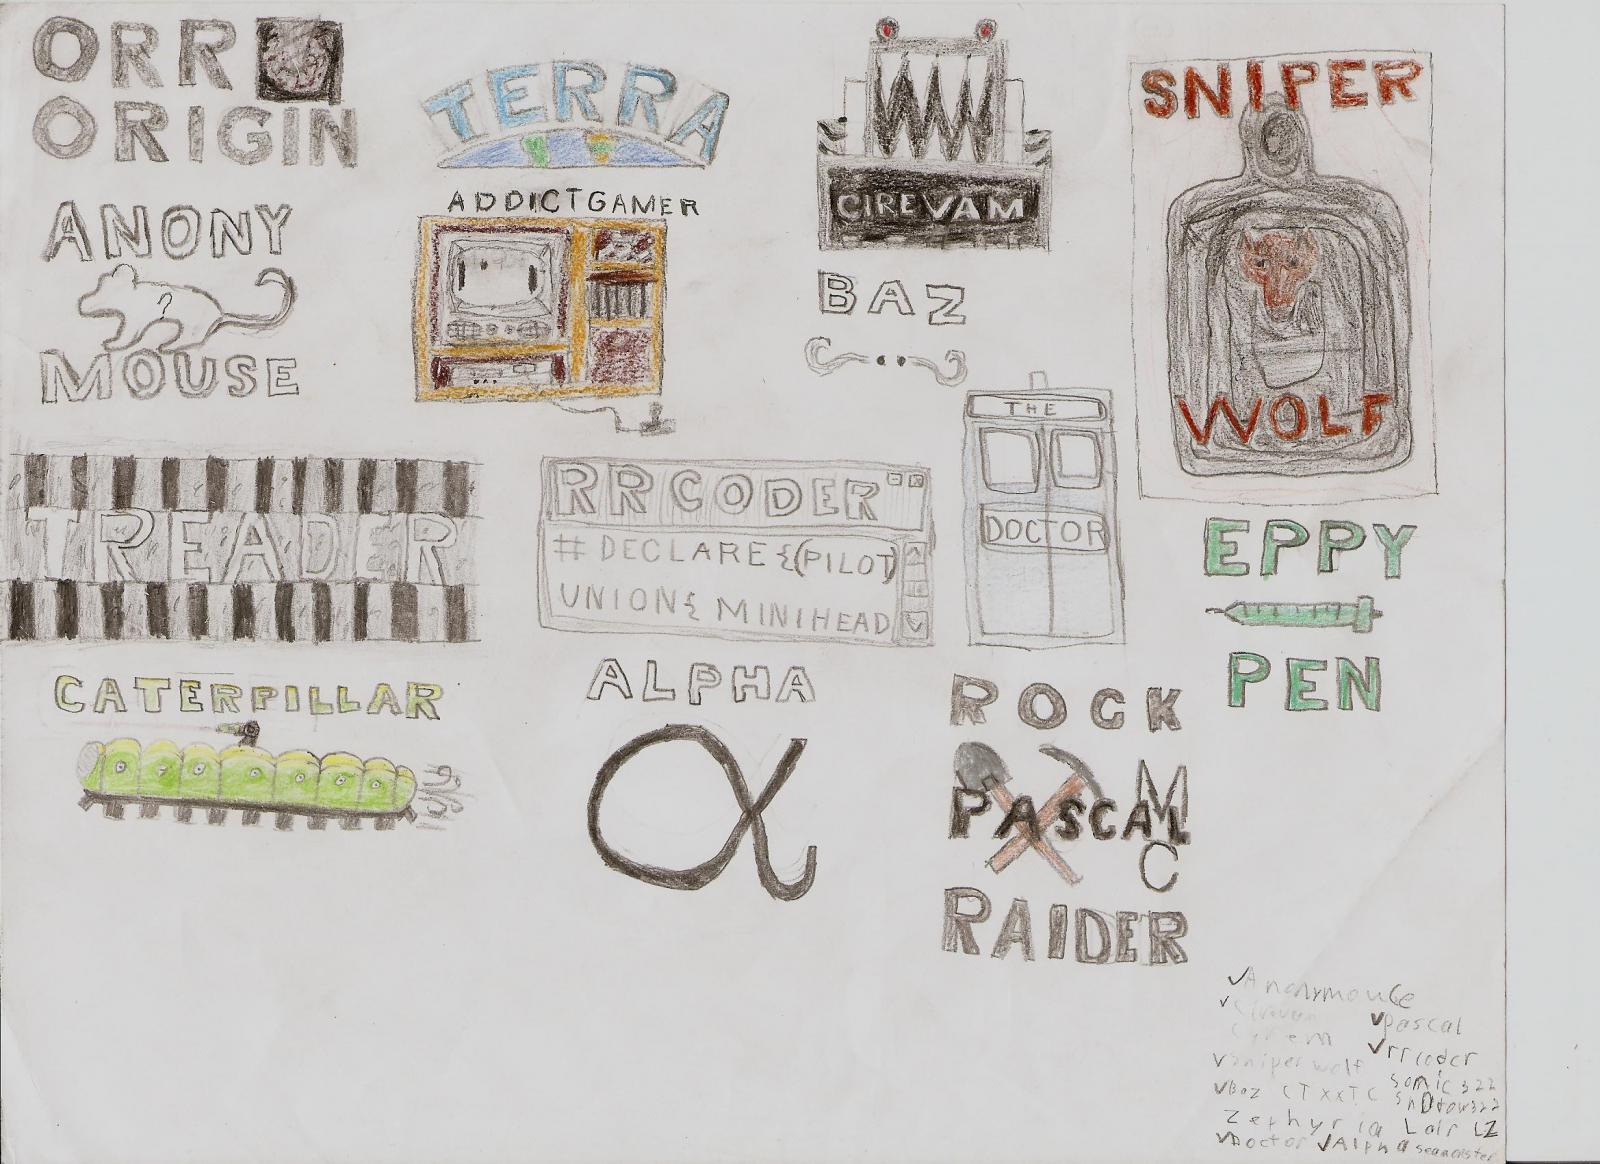 ORR
ORIGIN
ANONY
?
MOUSE
TERRA
ADDICTGAMER
CIREVAM
BAZ
SNIPER
WOLF
TREADER
RRCODER
# DECLARE {(PILOT)
UNION{ MINIHEAD
THE
DOCTOR
EPPY
PEN
CATERPILLAR
ALPHA
α
ROCK
PASCAL
MC
RAIDER
Anonymouse
pascal
rrcoder
Sniper wolf
Sonic322
Baz CTXXTC
Zephyria Lair LZ
Doctor Alpha seamonster